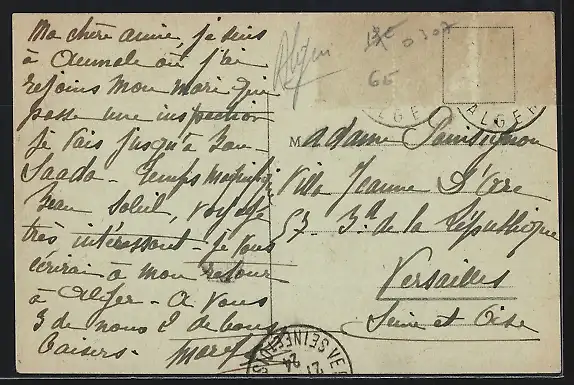 Ma chère amie, je suis
à Aumale où j'ai
rejoins mon mari qui
passe une inspection
je vais jusqu'à Bou
Saada - Temps magnifique
Beau soleil, voyage
très intéressant - je vous
écrirai à mon retour
à Alger - A vous
3 de nous 2 de bons
baisers -
Algérie
13E
0307
65
ALGER
ALGER
Madame
Villa Jeanne D'Arc
57. Bd de la République
Versailles
Seine et Oise
VE
SEINE